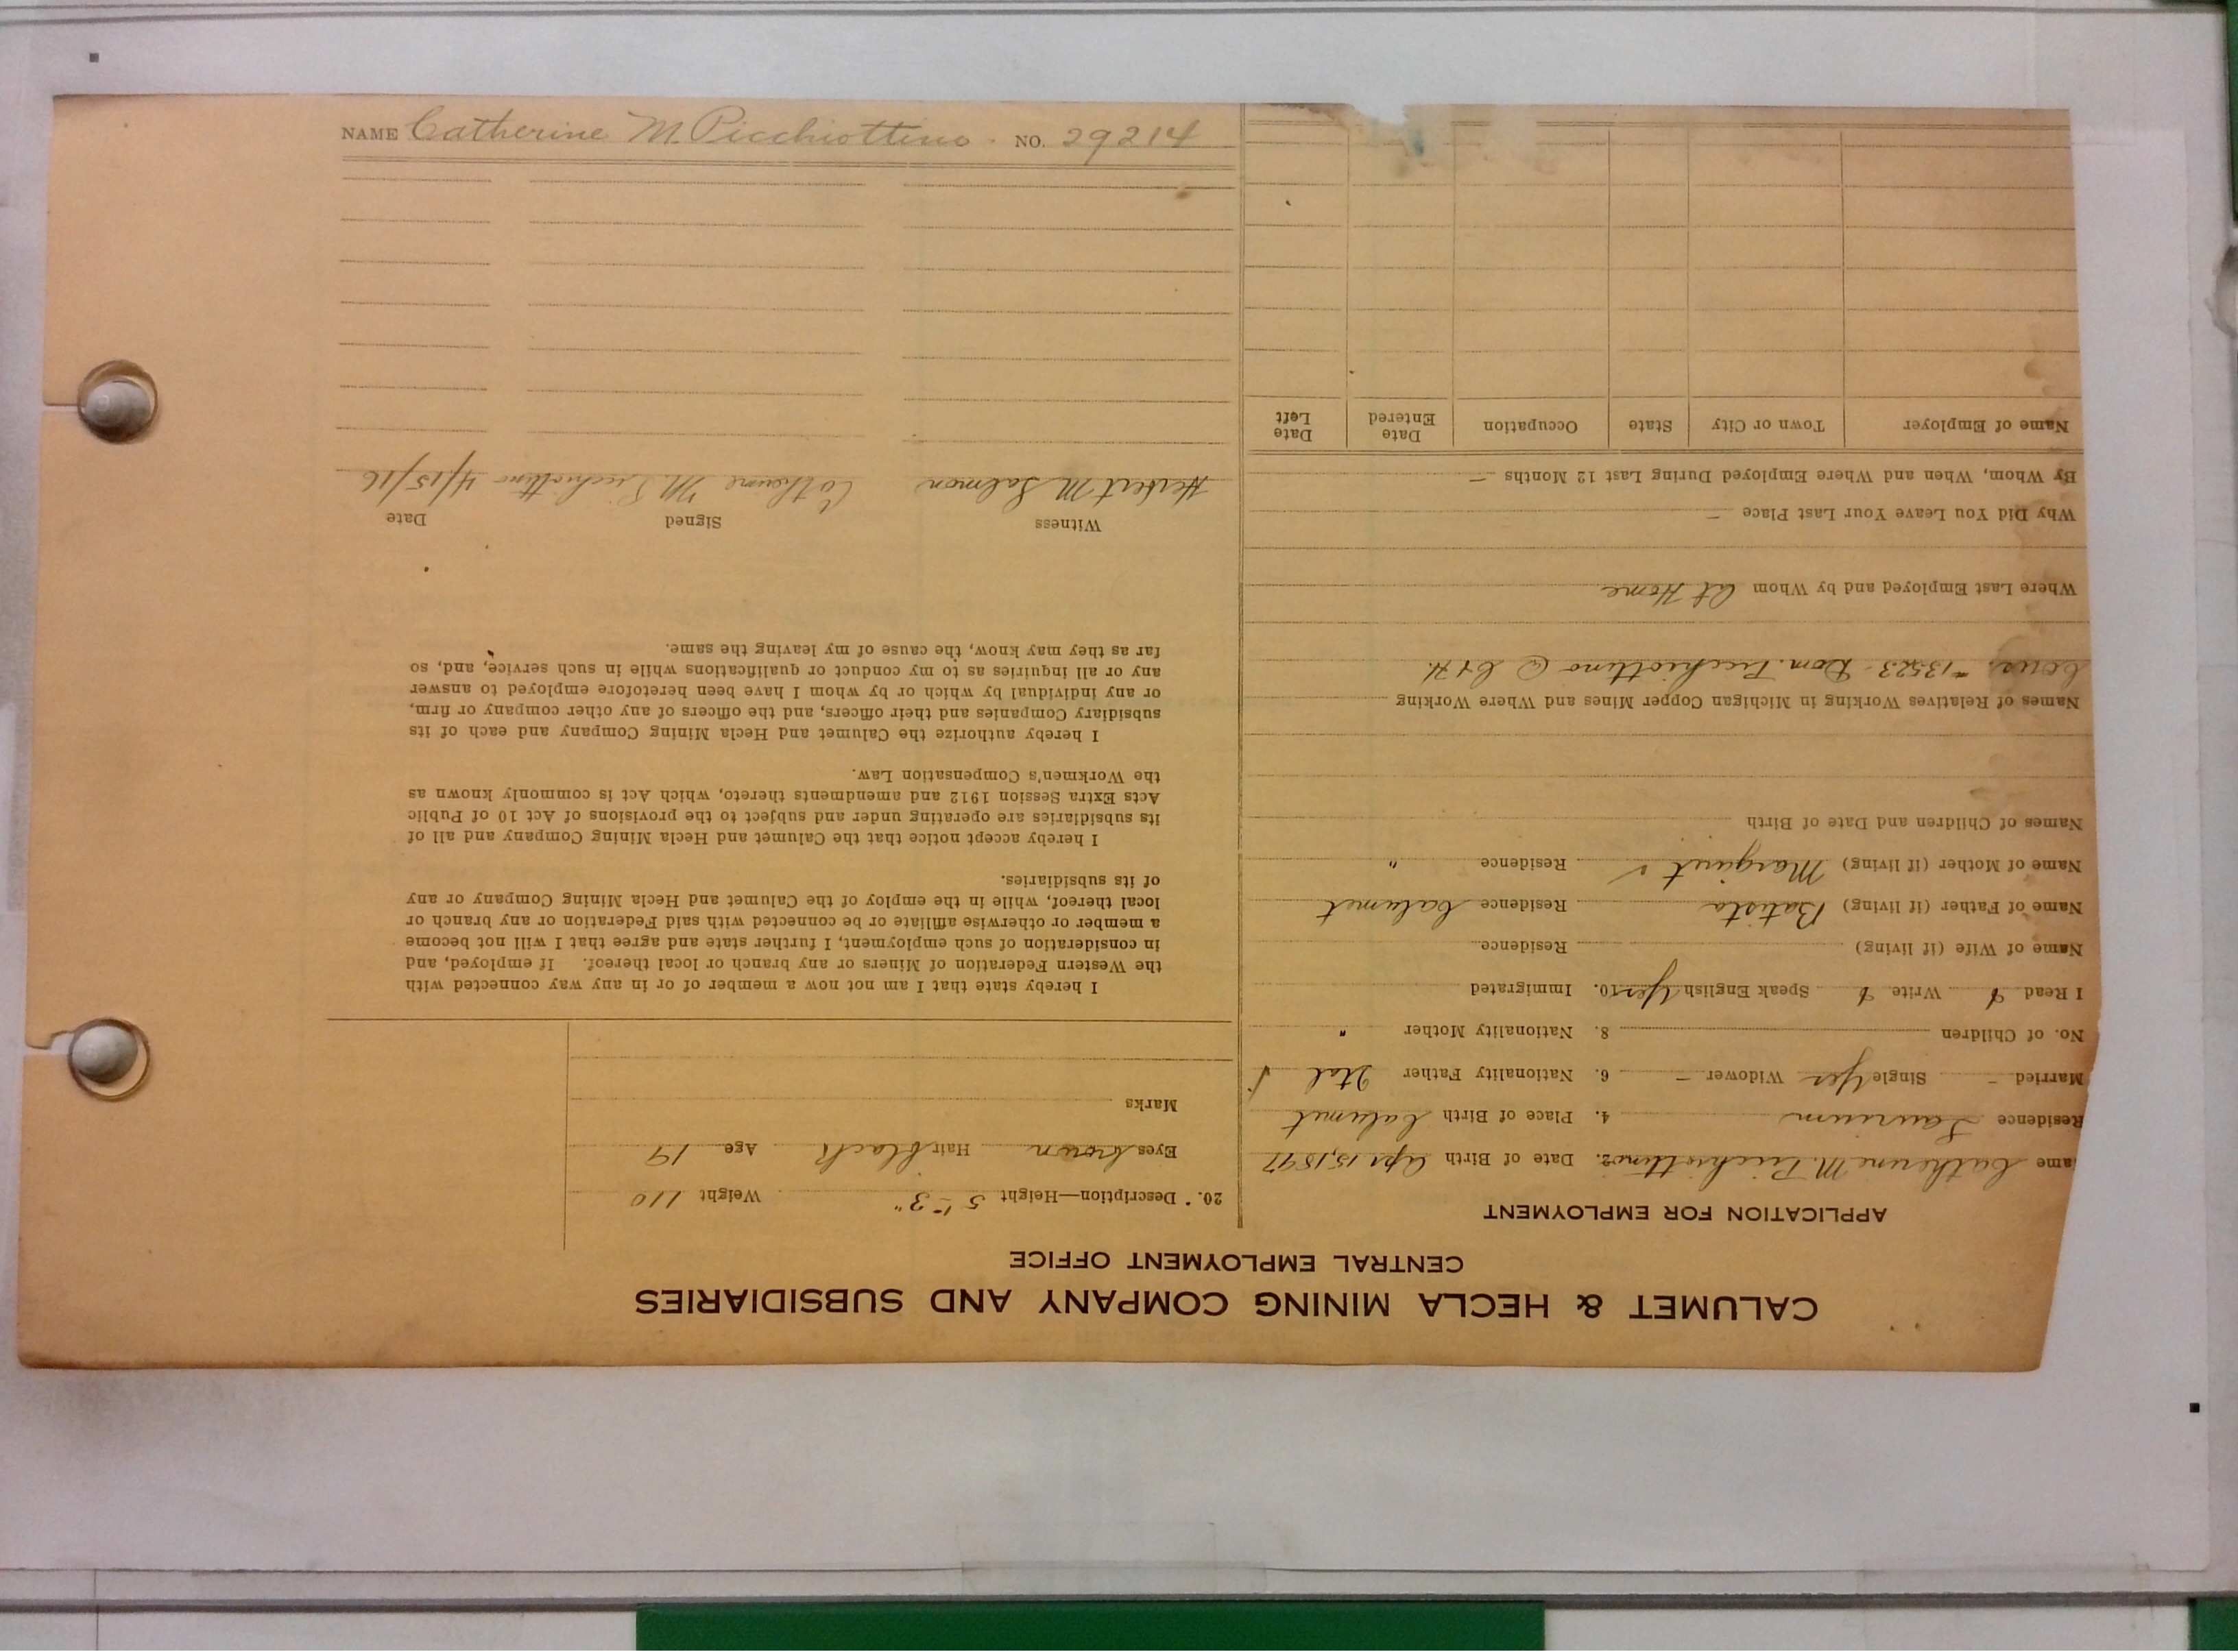 CALUMET & HECLA MINING COMPANY AND SUBSIDIARIES
CENTRAL EMPLOYMENT OFFICE
APPLICATION FOR EMPLOYMENT
ame Catherine M. Picchiottino 2. Date of Birth Apr 15, 1897
Residence Laurium 4. Place of Birth Calumet
Married – Single Yes Widower – 6. Nationality Father Ital
No. of Children 8. Nationality Mother "
I Read Write Speak English Yes 10. Immigrated
Name of Wife (if living) Residence
Name of Father (if living) Batista Residence Calumet
Name of Mother (if living) Residence "
Names of Children and Date of Birth
Names of Relatives Working in Michigan Copper Mines and Where Working
Cous. - 13523 - Dom. Picchiottino @ C & H.
Where Last Employed and by Whom At Home
Why Did You Leave Your Last Place –
By Whom, When and Where Employed During Last 12 Months –
Name of Employer Town or City State Occupation Date Entered Date Left
20. Description—Height 5'-3" Weight 110
Eyes brown Hair black Age 19
Marks
I hereby state that I am not now a member of or in any way connected with
the Western Federation of Miners or any branch or local thereof. If employed, and
in consideration of such employment, I further state and agree that I will not become
a member or otherwise affiliate or be connected with said Federation or any branch or
local thereof, while in the employ of the Calumet and Hecla Mining Company or any
of its subsidiaries.
I hereby accept notice that the Calumet and Hecla Mining Company and all of
its subsidiaries are operating under and subject to the provisions of Act 10 of Public
Acts Extra Session 1912 and amendments thereto, which Act is commonly known as
the Workmen's Compensation Law.
I hereby authorize the Calumet and Hecla Mining Company and each of its
subsidiary Companies and their officers, and the officers of any other company or firm,
or any individual by which or by whom I have been heretofore employed to answer
any or all inquiries as to my conduct or qualifications while in such service, and, so
far as they may know, the cause of my leaving the same.
Witness Signed Date
Herbert M Salmon Catherine M. Picchiottino 4/15/16
NAME Catherine M. Picchiottino NO. 29214